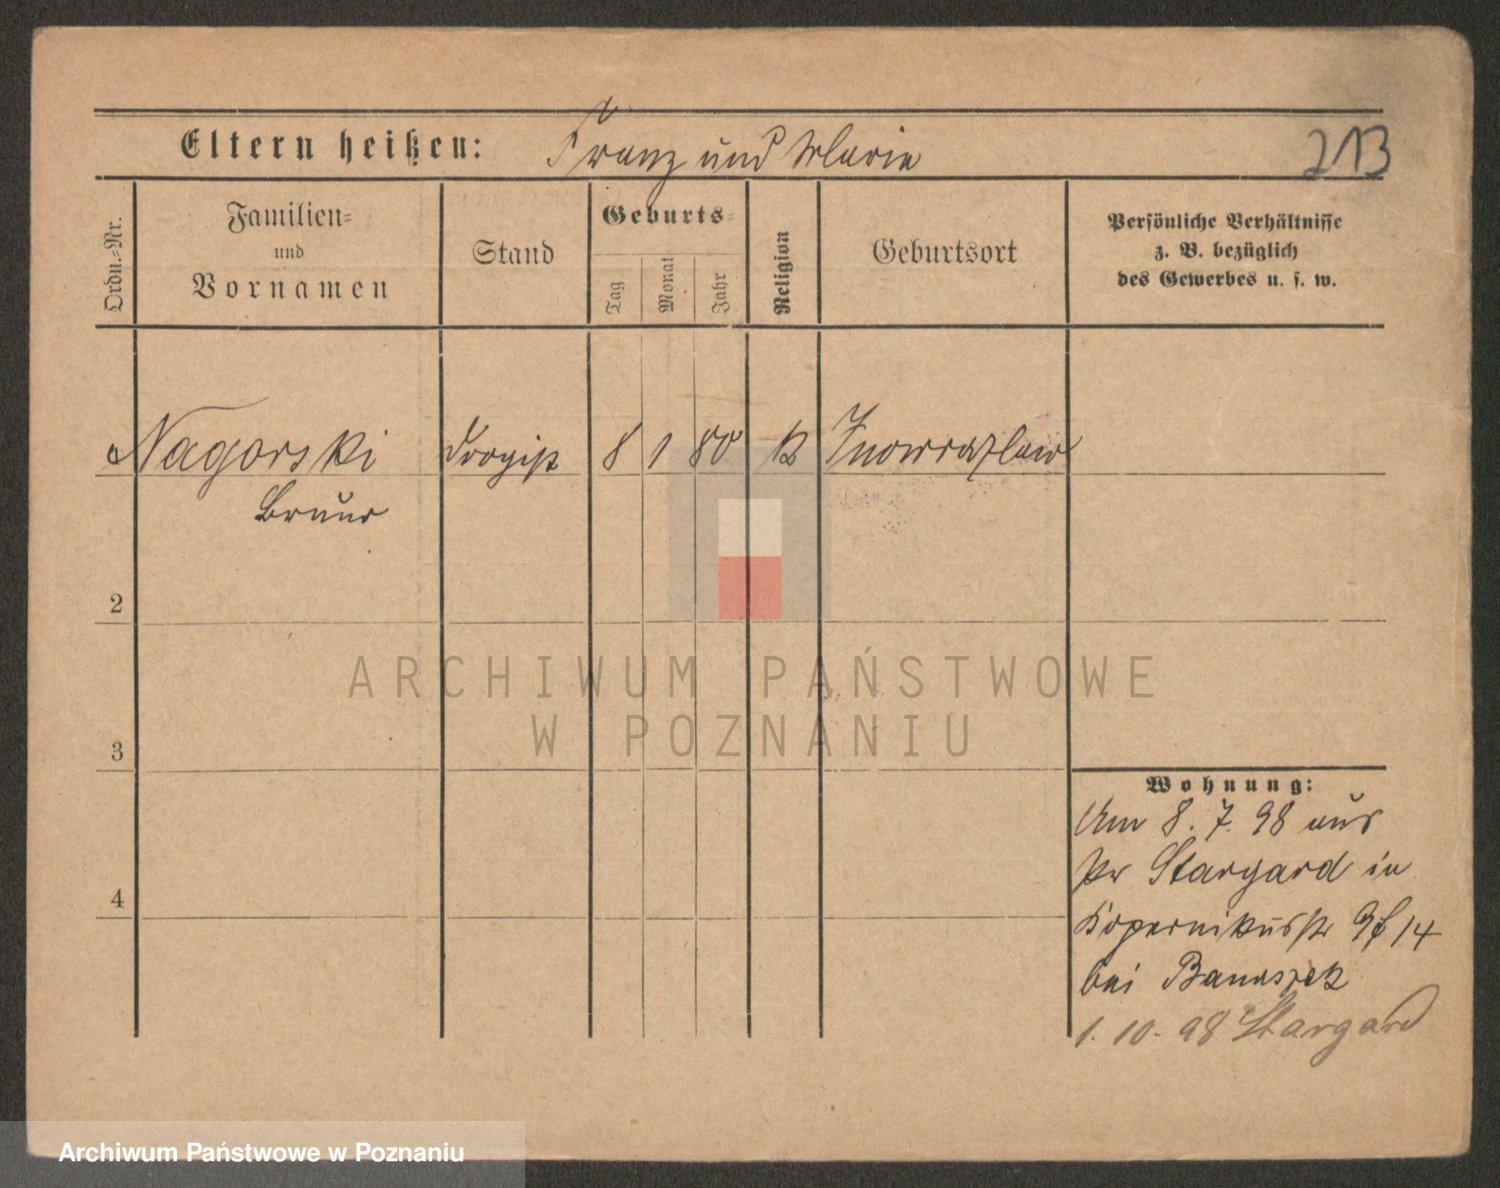 Eltern heißen: Franz und Marie
213
Ordn.-Nr.
Familien-
und
Vornamen
Stand
Geburts-
Tag
Monat
Jahr
Religion
Geburtsort
Persönliche Verhältnisse
z. B. bezüglich
des Gewerbes u. s. w.
Nagorski Drogist 8 1 80 k Inowrazlaw
Bruno
2
3
4
Wohnung:
Am 8. 7. 98 aus
Pr Stargard in
Kopernikusstr 14
bei Banaszek
1. 10. 98 Stargard
ARCHIWUM PAŃSTWOWE
W POZNANIU
Archiwum Państwowe w Poznaniu